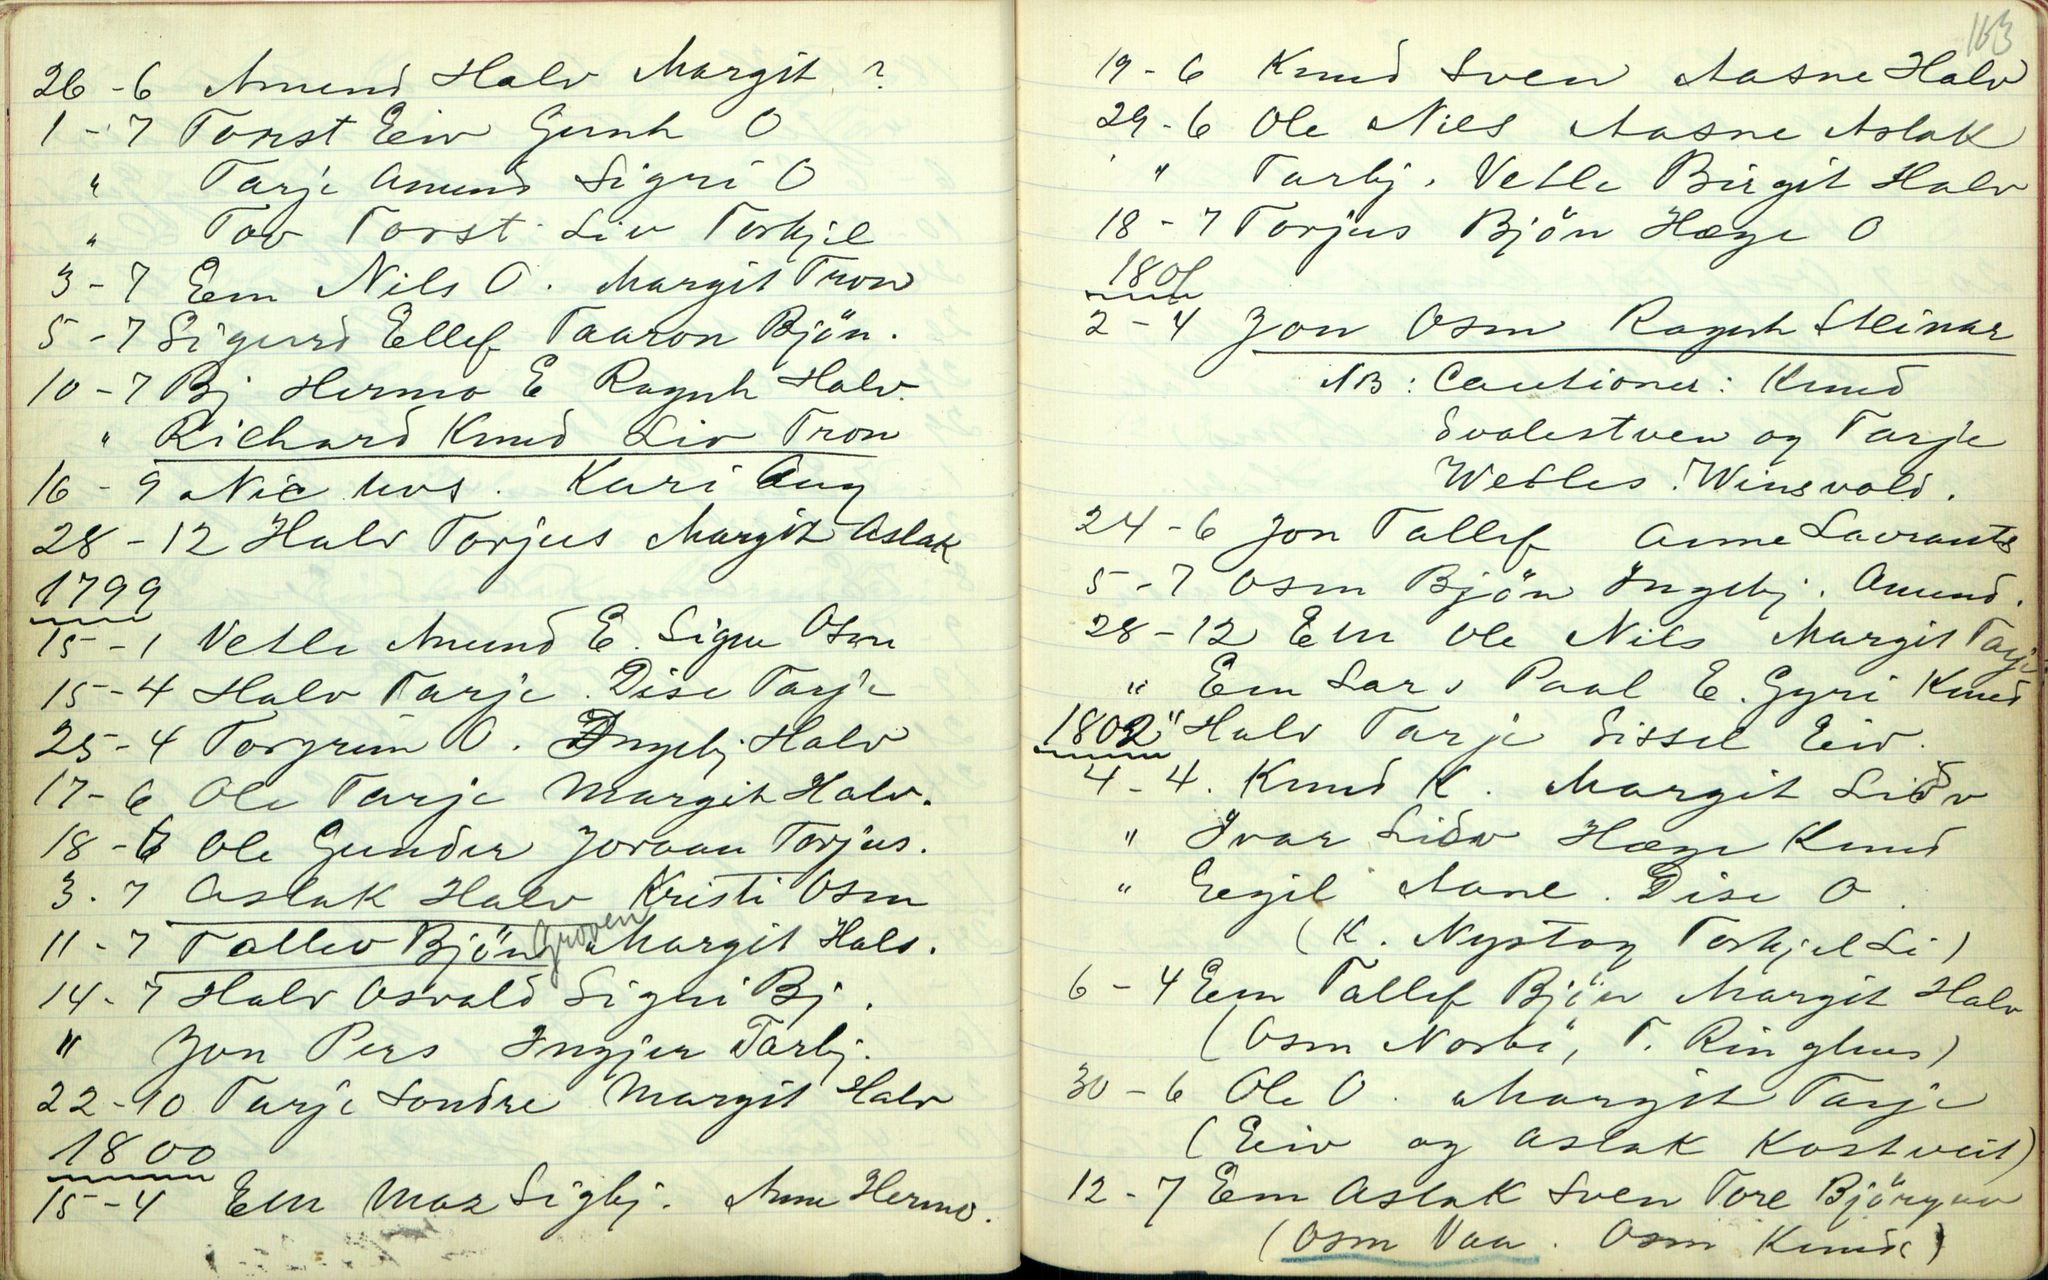 26-6 Amund Halv Margit ?
1-7 Torst Eiv Gunh O
" Tarje Amund Sigri O
" Tov Torst. Liv Torkjel
3-7 Em Nils O. Margit Tron
5-7 Sigurd Ellef Taaron Bjön.
10-7 Bj Hermo E Ragnh Halv.
" Richard Knud Liv Tron
16-9 Nic Kari Aug
28-12 Halv Torjus Margit Aslak
1799
15-1 Vetle Amund E. Signe Osm
15-4 Halv Tarje. Dise Tarje
25-4 Torgrim O. Ingebj. Halv
17-6 Ole Tarje Margit Halv.
18-6 Ole Gunder Joraan Torjus.
3.7 Aslak Halv Kristi Osm
11-7 Tallev Bjön Groven Margit Halv.
14-7 Halv Osvald Sigri Bj.
" Jon Pers Ingjer Tarbj.
22-10 Tarje Sondre Margit Halv
1800
15-4 Em Sigbj. Anne Hermo.
163
19-6 Knud Sven Aasne Halv
29-6 Ole Nils Aasne Aslak
" Tarbj. Vetle Birgit Halv
18-7 Torjus Bjön Hæge O
1801
2-4 Jon Osm Ragnh Steinar
NB: Cautioner: Knud
Svalestuen og Tarje
Vetles. Winsvold.
24-6 Jon Tallef Anne Lavrants
5-7 Osm Bjön Ingebj. Amund.
28-12 Em Ole Nils Margit Tarje
" Em Lars Paal E. Gyri Knud
1802 " Halv Tarje Sissel Eiv.
4-4. Knud K. Margit Lidv
" Ivar Lidv Hæge Knud
" Eegil Aane. Dise O.
(K. Nystog Torkjel Li)
6-4 Em Tallef Bjön Margit Halv
(Osm Norbö, T. Ringhus)
30-6 Ole O. Margit Tarje
(Eiv og Aslak Kostveit)
12-7 Em Aslak Sven Tore Björguv
(Osm Vaa. Osm Knuds)